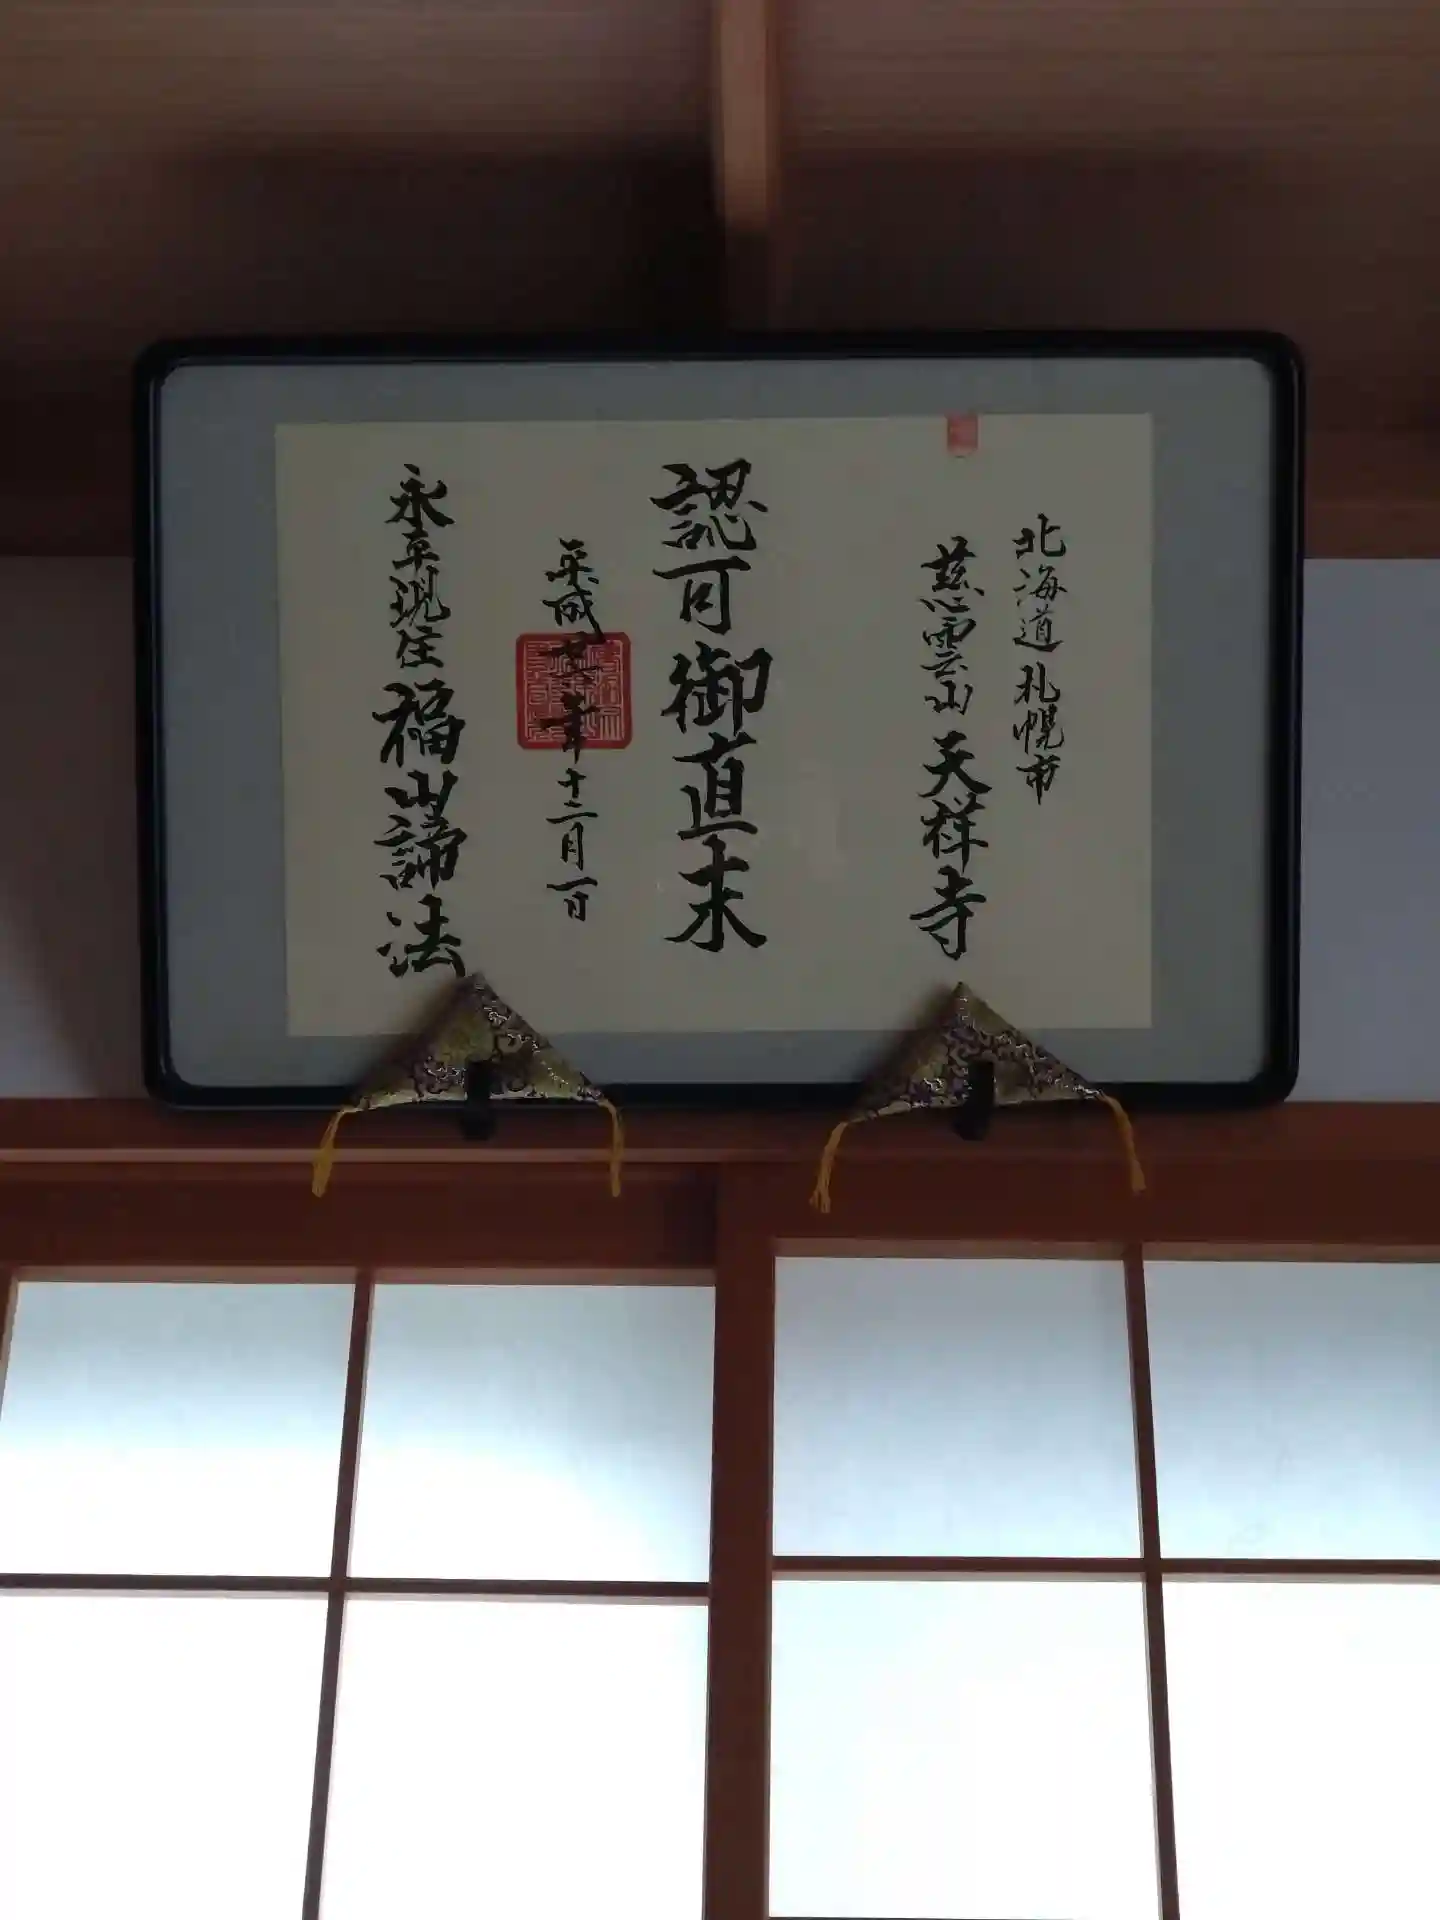 北海道札幌市
慈雲山天祥寺
認可御直末
平成廿一年十二月一日
永平現住福山諦法